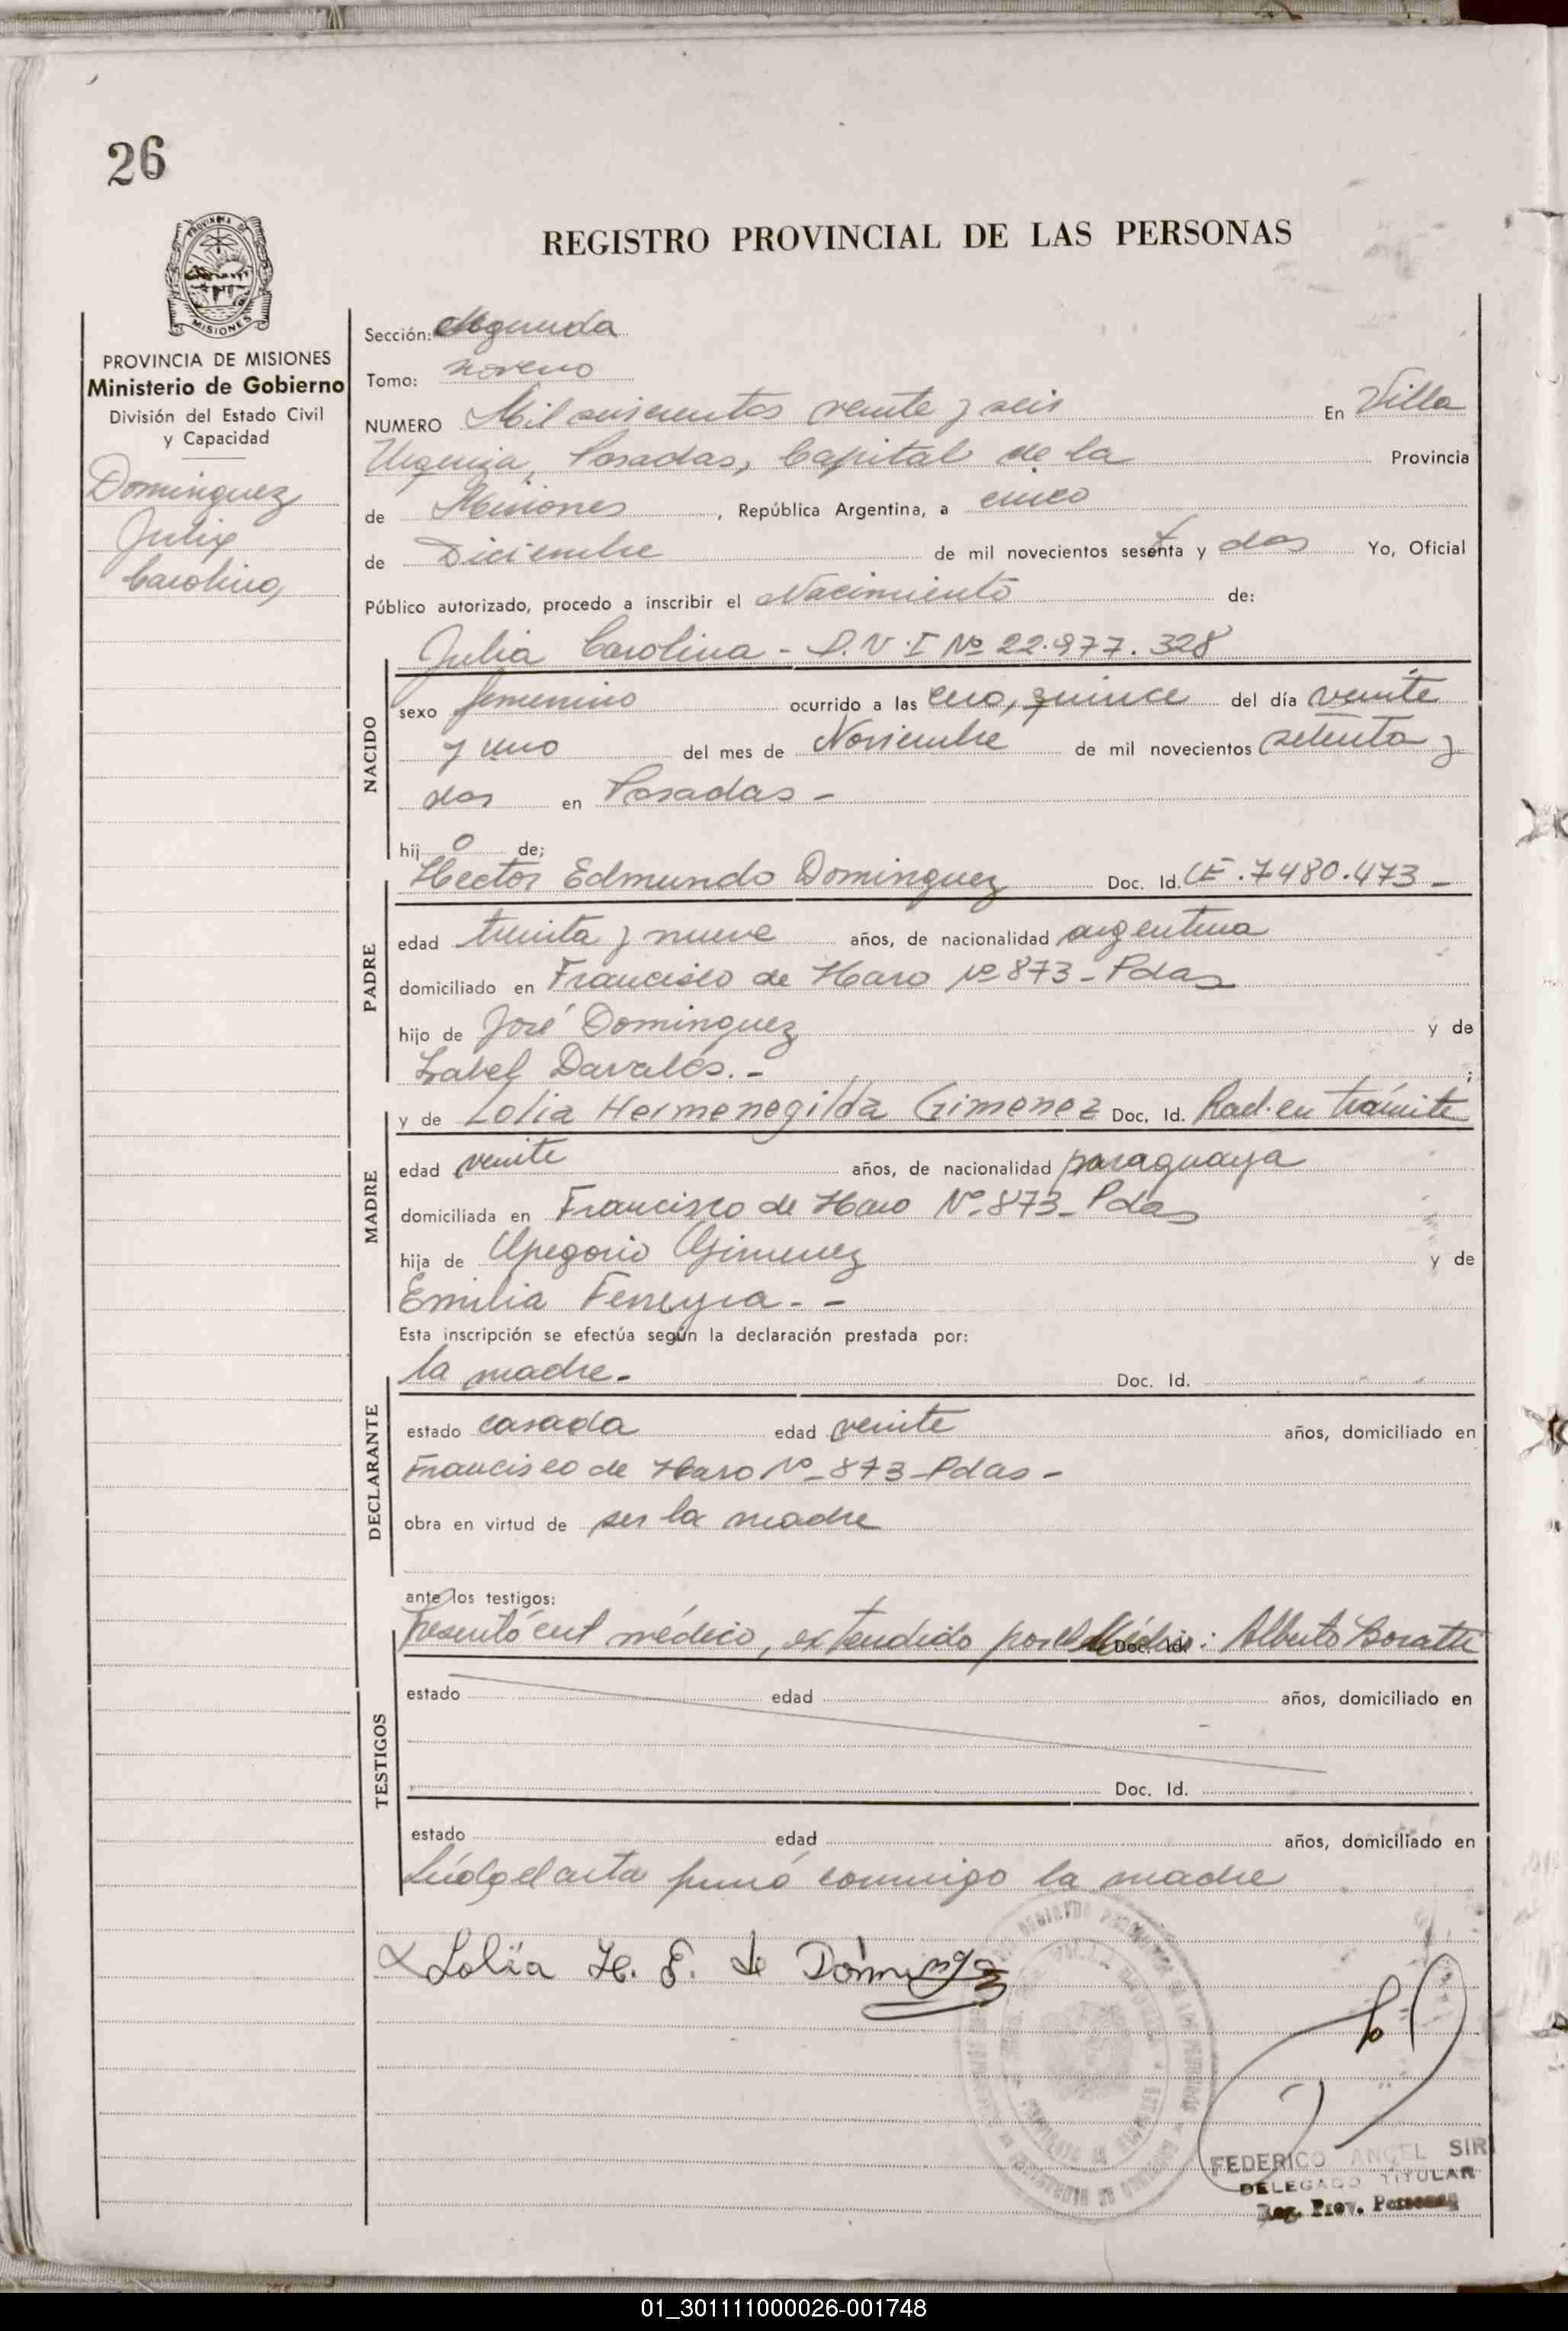 26
REGISTRO PROVINCIAL DE LAS PERSONAS
PROVINCIA DE MISIONES
Ministerio de Gobierno
División del Estado Civil
y Capacidad
Dominguez
Julia
Carolina
Sección: Segunda
Tomo: noveno
NUMERO Mil seiscientos veinte y seis En Villa
Urquiza, Posadas, Capital de la Provincia
de Misiones, República Argentina, a cinco
de Diciembre de mil novecientos sesenta y dos Yo, Oficial
Público autorizado, procedo a inscribir el Nacimiento de:
Julia Carolina - D.N.I Nº 22.977.328
NACIDO
sexo femenino ocurrido a las cero, quince del día veinte
y uno del mes de Noviembre de mil novecientos setenta y
dos en Posadas -
hij o de;
Hector Edmundo Dominguez Doc. Id. CE. 7480.473 -
PADRE
edad treinta y nueve años, de nacionalidad argentina
domiciliado en Francisco de Haro Nº 873 - Pdas
hijo de José Dominguez y de
Isabel Davalos. - ;
y de Lolia Hermenegilda Gimenez Doc. Id. Rad. en trámite
MADRE
edad veinte años, de nacionalidad paraguaya
domiciliada en Francisco de Haro Nº 873 - Pdas
hija de Gimenez y de
Emilia Ferreyra - -
Esta inscripción se efectúa según la declaración prestada por:
la madre. Doc. Id.
DECLARANTE
estado casada edad veinte años, domiciliado en
Francisco de Haro Nº - 873 - Pdas -
obra en virtud de ser la madre
ante los testigos:
Presentó cert médico, extendido por el Médico: Alberto Doc. Id.
TESTIGOS
estado edad años, domiciliado en
Doc. Id.
estado edad años, domiciliado en
Leída el acta firmó conmigo la madre
Lolia H. G. de Dominguez
FEDERICO ANGEL SIR
DELEGADO TITULAR
Reg. Prov. Personas
01_301111000026-001748